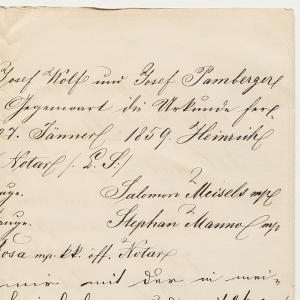 Josef Wolf und Josef Pamberger
Gegenwart die Urkunde her-
27. Jänner 1859. Heinrich
Notar /: L.S:/
Salomon Meisels mp
Zeuge. Stephan Manno mp
osa mp. kk. öff. Notar
mir mit der in mei-